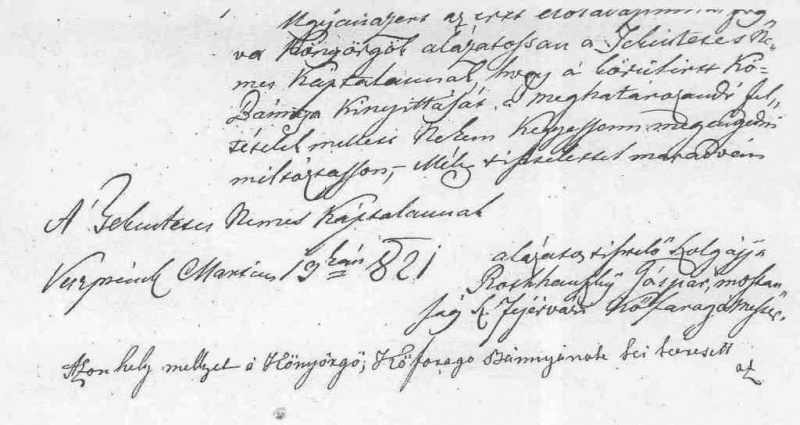 Ugyanazért az ezt
va Könyörgök alázatossan a Tekintetes Ne-
mes Káptalannak, hogy á körűlirtt Kő-
Bánya Kinyittását, a meghatározandó fel„
tételek mellett Nekem Kegyessenn megengedni
méltóztasson, Mély tisztelettel maradván
A' Tekintetes Nemes Káptalannak
Veszprémb Martius 19kén 821
alázatos tisztelő szolgájja
Gáspár, mostan
ság Sz. Fejérvári Kőfaragó Mester.
Azon hely mellyet á Könyörgő, Kőfaragó Bánnyának ki keresett
az